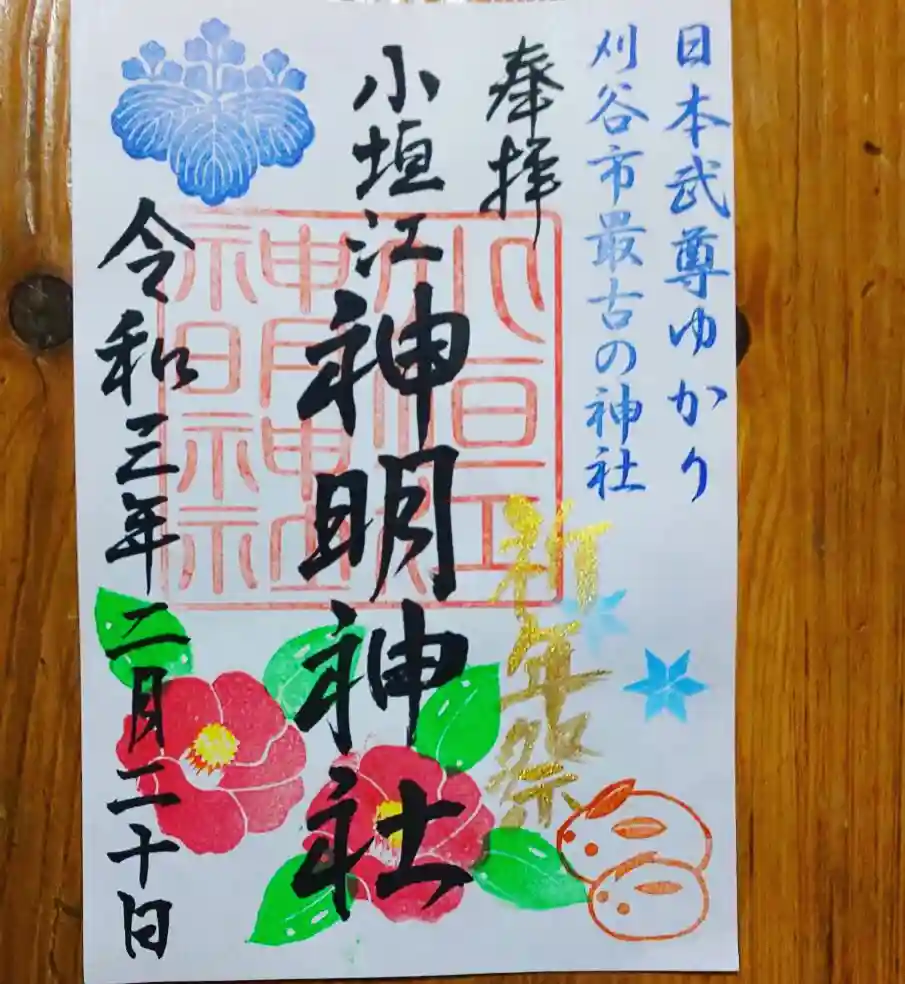 日本武尊ゆかり
刈谷市最古の神社
奉拝
祈年祭
小垣江神明神社
令和三年二月二十日